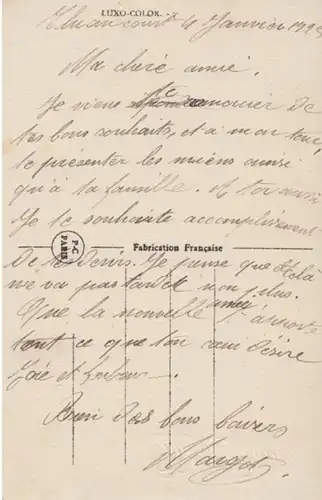 LUXO-COLOR.
4 Janvier 192
Ma chère amie,
Je viens te remercier de
tes bons souhaits, et à mon tour
te présenter les miens ainsi
qu'à ta famille. A toi aussi
Je te souhaite accomplissement
P.C. PARIS
Fabrication Française
De tes Désirs. Je pense que
ne va pas tarder non plus.
Que la nouvelle année t'apporte
tout ce que ton cœur désire
Joie et bonheur.
Bien des bons baisers
Margot